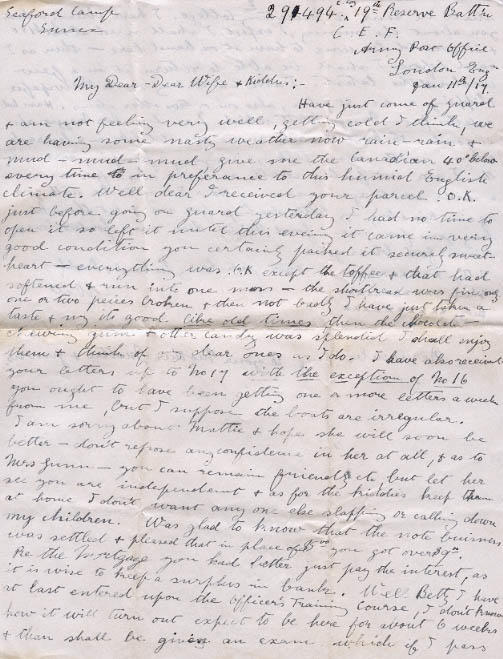 Seaford Camp
Sussex
291494. 19th Reserve Battn
C. E. F.
Army Post Office
London Eng
Jan 11th/17.
My Dear Dear Wife & Kiddies:-
Have just come of guard
& am not feeling very well, getting cold I think, we
are having some nasty weather now rain - rain &
mud - mud - mud, give me the Canadian 40° below
every time in preferance to this humid English
climate. Well dear I received your parcel O.K.
just before going on guard yesterday I had no time to
open it so left it until this eveing it came in very
good condition you certainly packed it securely sweet-
heart - everything was O.K except the toffee & that had
softened & run into one mass - the shortbread was fine only
one or two peices broken & then not badly I have just taken a
taste & my its good. like old times then the
chewing gum & other candy was splendid I shall enjoy
them & think of dear ones as I do. I have also received
your letters up to No 17 with the exception of No 16
you ought to have been getting one or more letters a week
from me, but I suppose the boats are irregular.
I am sorry about Mattie & hope she will soon be
better - don't repose any confidence in her at all, & as to
Mrs Gunn - you can remain friends etc, but let her
see you are independent & as for the kiddies keep them
at home I dont want any one else slapping or calling down
my children. Was glad to know that the note buisness
was settled & pleased that in place of you got over
Re the Mortgage you had better just pay the interest, as
it is wise to keep a surplus in bank. Well Betty I have
at last entered upon the Officer's Training Course, I dont know
how it will turn out expect to be here for about 6 weeks
& than shall be given an exam which if I pass